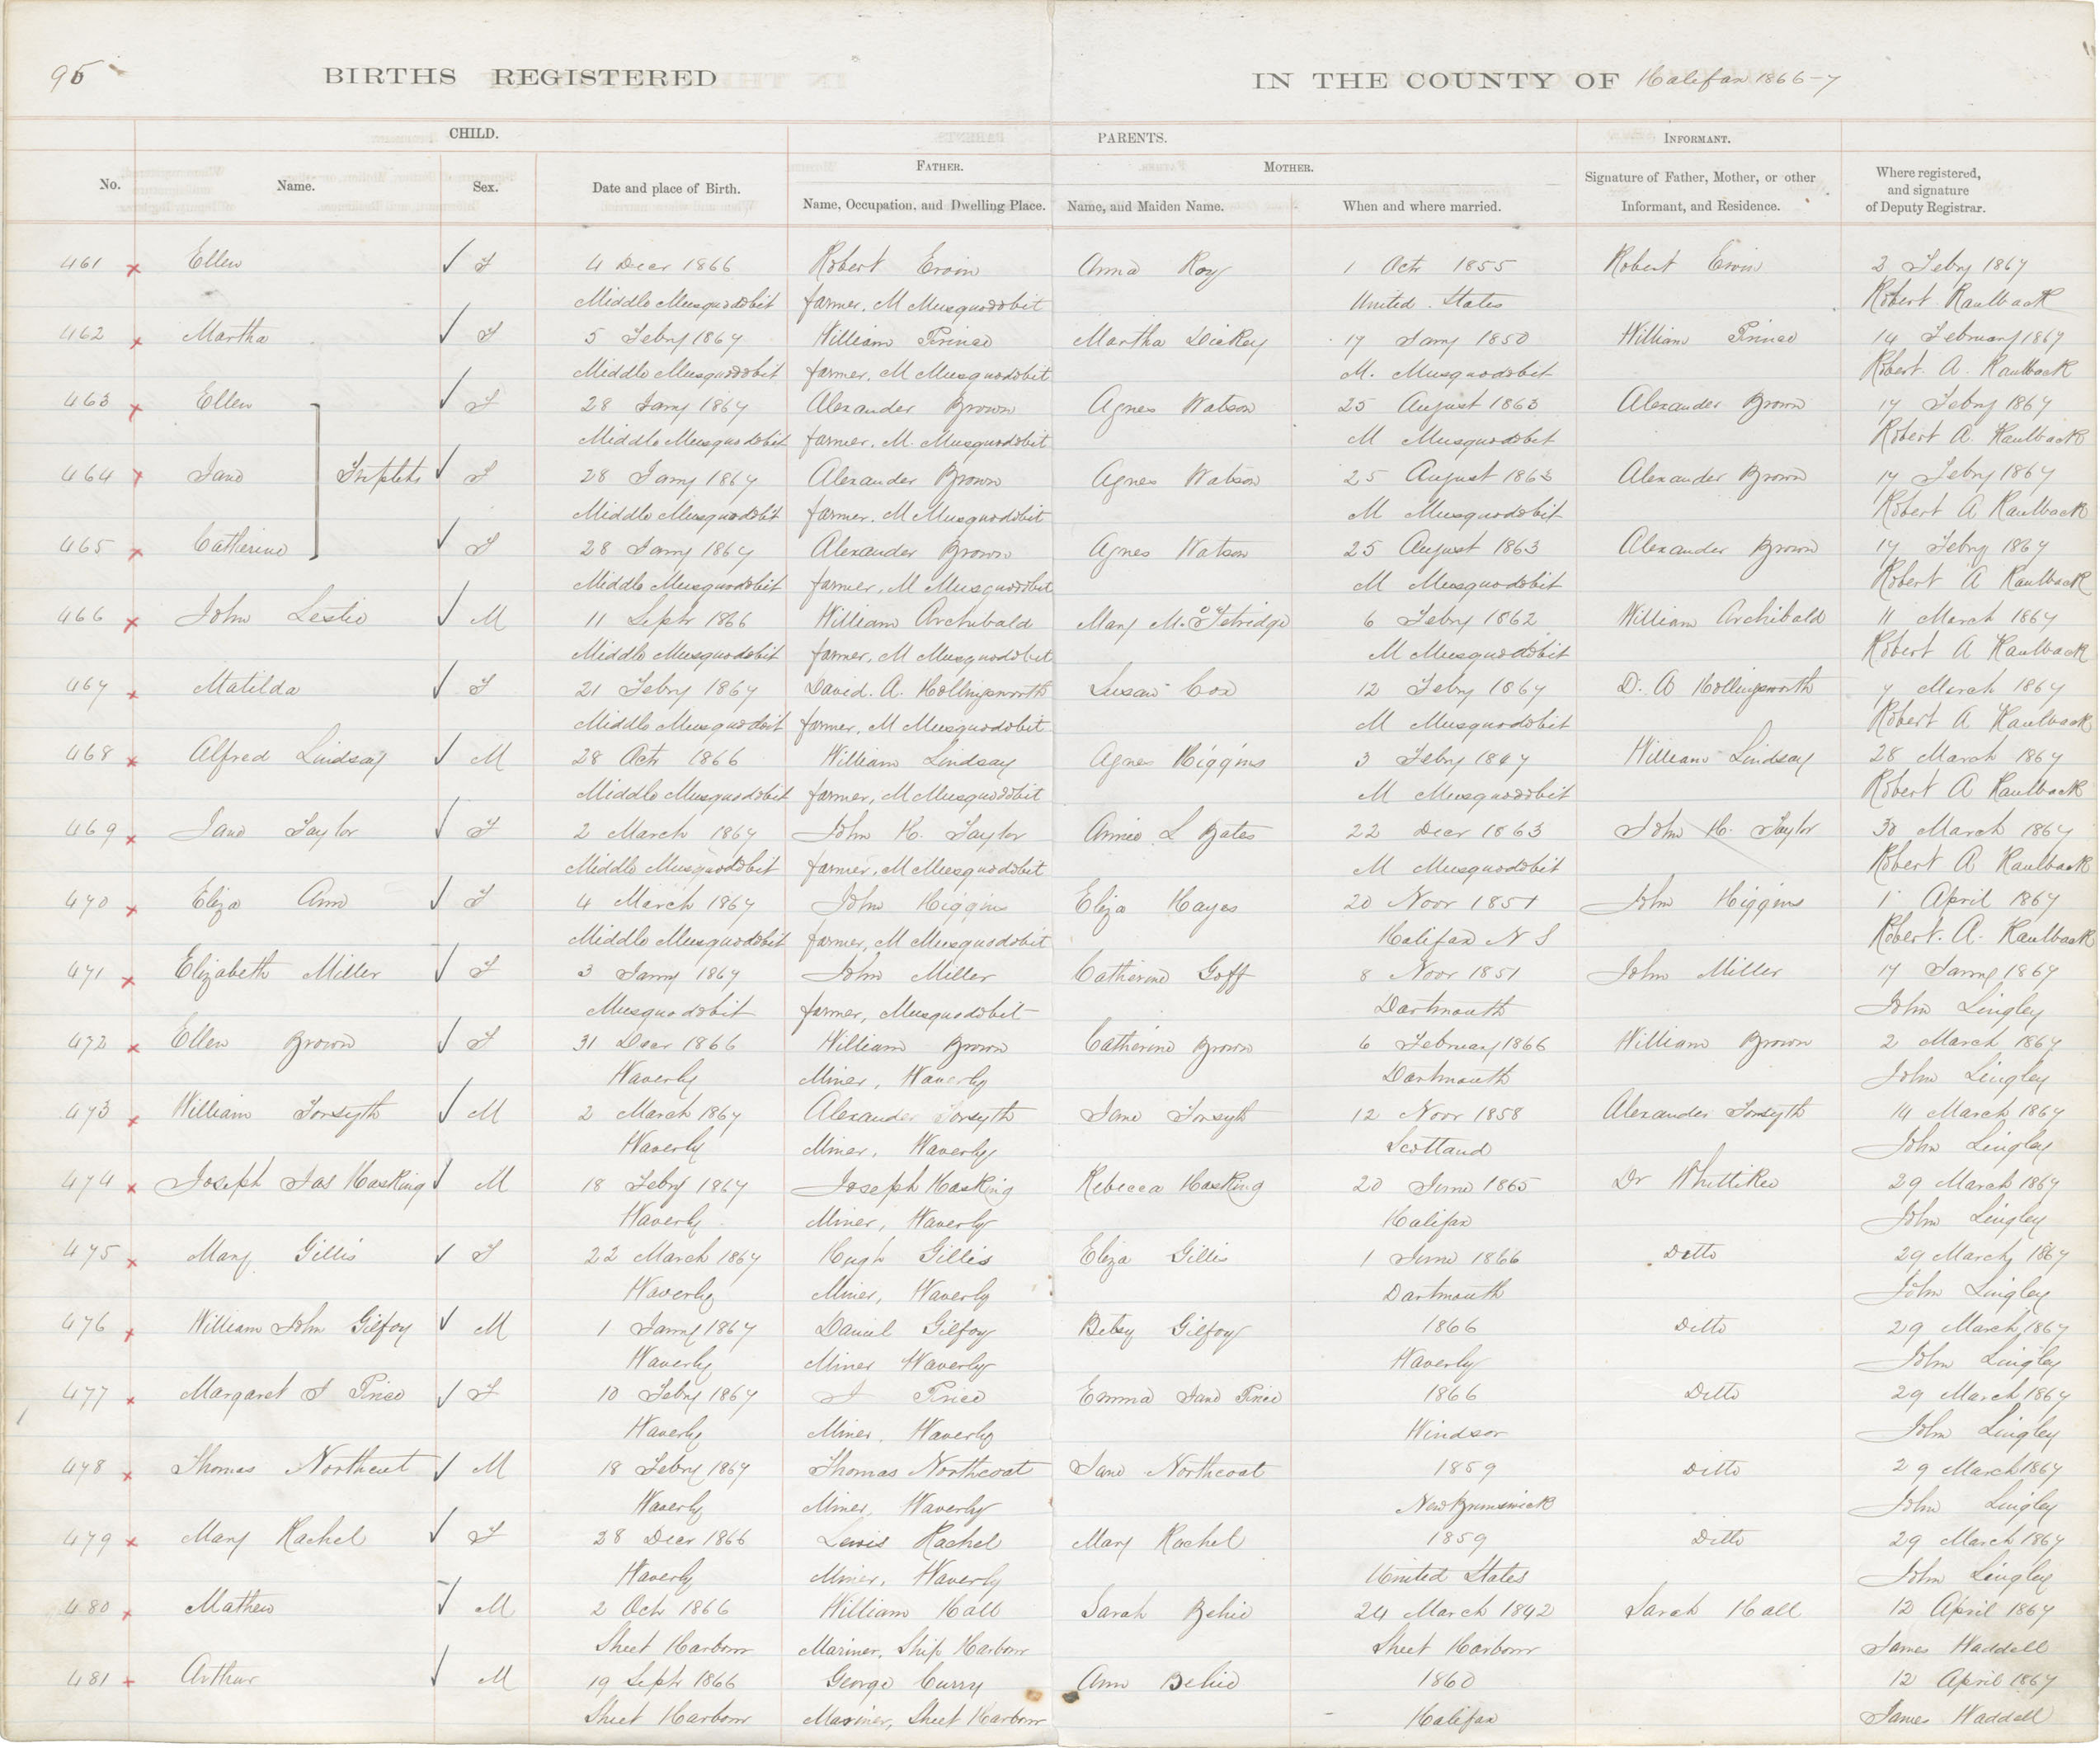 95 BIRTHS REGISTERED IN THE COUNTY OF Halifax 1866-7
CHILD. PARENTS. INFORMANT.
No. Name. Sex. Date and place of Birth. FATHER. Name, Occupation, and Dwelling Place. MOTHER. Name, and Maiden Name. When and where married. Signature of Father, Mother, or other Informant, and Residence. Where registered, and signature of Deputy Registrar.
461 Ellen F 4 Decr 1866 Robert Ervin Anna Roy 1 Octr 1855 Robert Ervin 2 Febry 1867
Middle Musquodobit farmer, M Musquodobit United States Robert Kaulback
462 Martha F 5 Febry 1867 William Prince Martha Dickey 17 Jany 1850 William Prince 14 February 1867
Middle Musquodobit farmer, M Musquodobit M. Musquodobit Robert. A. Kaulback
463 Ellen F 28 Jany 1867 Alexander Brown Agnes Watson 25 August 1863 Alexander Brown 17 Febry 1867
Middle Musquodobit farmer, M. Musquodobit M Musquodobit Robert A. Kaulback
464 Jane Triplets F 28 Jany 1867 Alexander Brown Agnes Watson 25 August 1863 Alexander Brown 17 Febry 1867
Middle Musquodobit farmer, M Musquodobit M Musquodobit Robert A Kaulback
465 Catherine F 28 Jany 1867 Alexander Brown Agnes Watson 25 August 1863 Alexander Brown 17 Febry 1867
Middle Musquodobit farmer, M Musquodobit M Musquodobit Robert A Kaulback
466 John Leslie M 11 Septr 1866 William Archibald Mary M. 6 Febry 1862 William Archibald 11 March 1867
Middle Musquodobit farmer, M Musquodobit M Musquodobit Robert A Kaulback
467 Matilda F 21 Febry 1867 David. A. Hollingsworth Susan Cox 12 Febry 1867 D. A Hollingsworth 7 March 1867
Middle Musquodobit farmer, M Musquodobit M Musquodobit Robert A Kaulback
468 Alfred Lindsay M 28 Octr 1866 William Lindsay Agnes Higgins 3 Febry William Lindsay 28 March 1867
Middle Musquodobit farmer, M Musquodobit M Musquodobit Robert A Kaulback
469 Jane Taylor F 2 March 1867 John H. Taylor Annie L Bates 22 Decr 1863 John H. Taylor 30 March 1867
Middle Musquodobit farmer, M Musquodobit M Musquodobit Robert A Kaulback
470 Eliza Ann F 4 March 1867 John Higgins Eliza Hayes 20 Novr 1851 John Higgins 1 April 1867
Middle Musquodobit farmer, M Musquodobit Halifax N S Robert. A. Kaulback
471 Elizabeth Miller F 3 Jany 1867 John Miller Catherine Goff 8 Novr 1851 John Miller 17 Jany 1867
Musquodobit farmer, Musquodobit Dartmouth John Lingley
472 Ellen Brown F 31 Decr 1866 William Brown Catherine Brown 6 February 1866 William Brown 2 March 1867
Waverly Miner, Waverly Dartmouth John Lingley
473 William Forsyth M 2 March 1867 Alexander Forsyth Jane Forsyth 12 Novr 1858 Alexander Forsyth 14 March 1867
Waverly Miner, Waverly Scotland John Lingley
474 Joseph Jas Hasking M 18 Febry 1867 Joseph Hasking Rebecca Hasking 20 June 1865 Dr Whittikee 29 March 1867
Waverly Miner, Waverly Halifax John Lingley
475 Mary Gillis F 22 March 1867 Hugh Gillis Eliza Gillis 1 June 1866 Ditto 29 March 1867
Waverly Miner, Waverly Dartmouth John Lingley
476 William John Gilfoy M 1 Jany 1867 Daniel Gilfoy Betsy Gilfoy 1866 Ditto 29 March 1867
Waverly Miner Waverly Waverly John Lingley
477 Margaret J Price F 10 Febry 1867 J Price Emma Jane Price 1866 Ditto 29 March 1867
Waverly Miner, Waverly Windsor John Lingley
478 Thomas Northcut M 18 Febry 1867 Thomas Northcoat Jane Northcoat 1859 Ditto 29 March 1867
Waverly Miner, Waverly New Brunswick John Lingley
479 Mary Rachel F 28 Decr 1866 Lewis Rachel Mary Rachel 1859 Ditto 29 March 1867
Waverly Miner, Waverly United States John Lingley
480 Mathew M 2 Octr 1866 William Hall Sarah Behie 24 March 1842 Sarah Hall 12 April 1867
Sheet Harbour Mariner, Ship Harbour Sheet Harbour James Waddell
481 Arthur M 19 Septr 1866 George Curry Ann Behie 1860 12 April 1867
Sheet Harbour Mariner, Sheet Harbour Halifax James Waddell